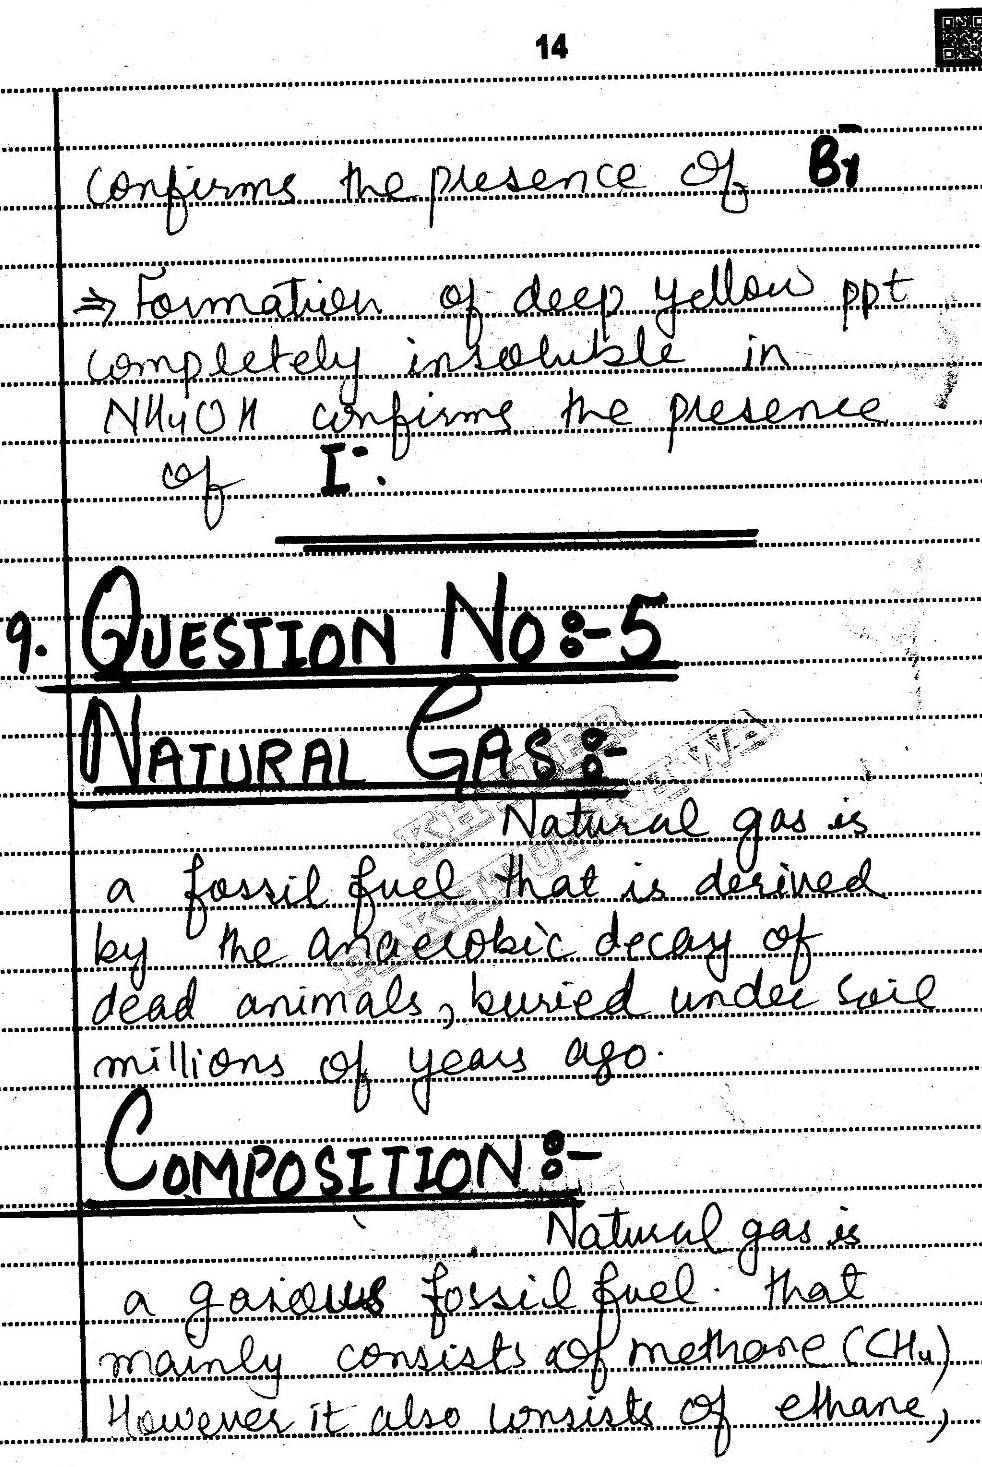 14
confirms the presence of Br⁻
⇒ Formation of deep yellow ppt
completely insoluble in
NH4OH confirms the presence
of I⁻.
9. QUESTION No:-5
NATURAL GAS:-
Natural gas is
a fossil fuel that is derived
by the anaerobic decay of
dead animals, buried under soil
millions of years ago.
COMPOSITION:-
Natural gas is
a gasious fossil fuel. that
mainly consists of methane (CH4)
However it also consists of ethane,
KHYBER
PAKHTUNKHWA